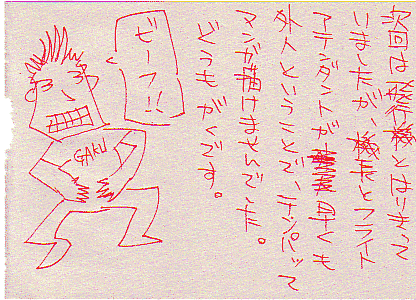 次回は飛行機とはりきって
いましたが、機長とフライト
アテンダントが
外人ということで、テンパって
マンガ描けませんでした。
どうもがくです。
ゼーフ!!
GAKU